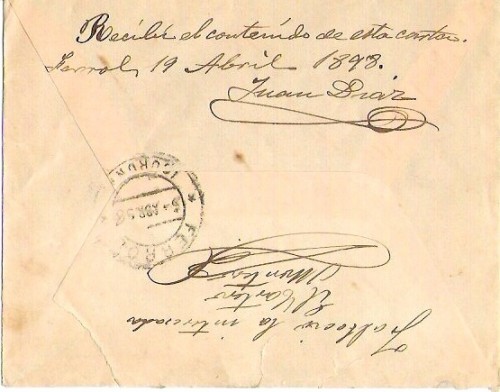 Recibí el contenido de esta carta.
Ferrol 19 Abril 1898.
Juan Diaz
(CORUÑA)
ABR 98
* FERROL *
Falleció la interesada
El Cartero